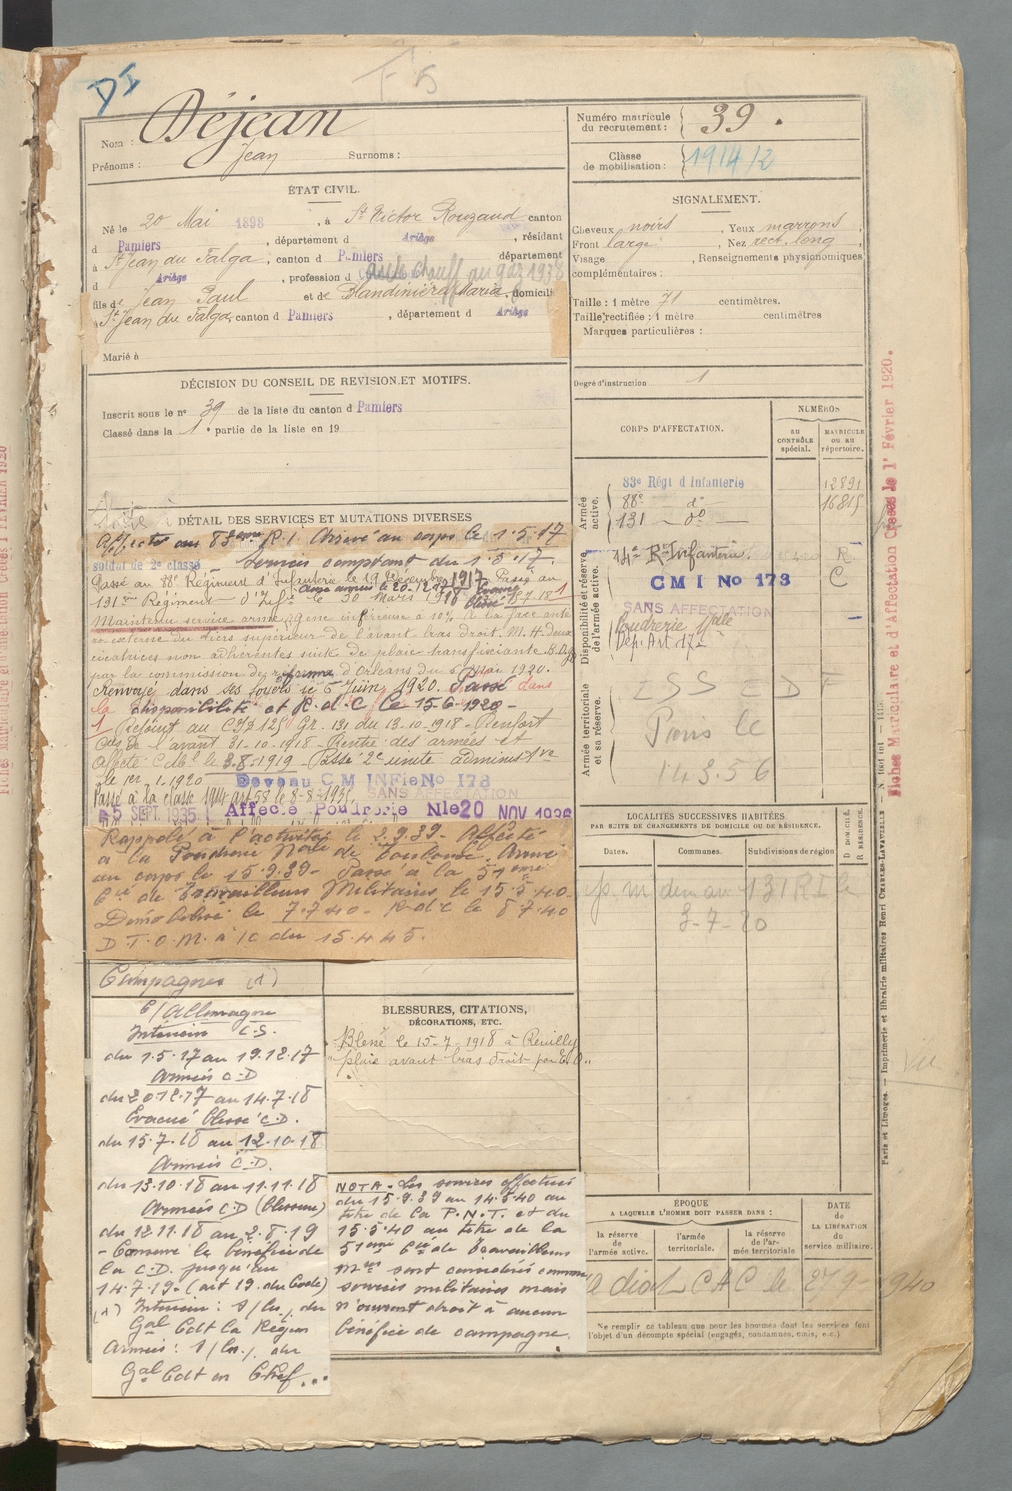 DI
F 5
Nom : Déjean
Prénoms : Jean Surnoms :
Numéro matricule du recrutement : 39.
Classe de mobilisation : 1914/2
ÉTAT CIVIL.
Né le 20 Mai 1898, à St Victor Rouzaud canton
d Pamiers, département d Ariège, résidant
à St Jean du Falga, canton d Pamiers département
d Ariège, profession d chauff au gaz 1938
fils de Jean Paul et de Blandinières Maria, domiciliés
à St Jean du Falga, canton d Pamiers, département d Ariège
Marié à
SIGNALEMENT.
Cheveux noirs, Yeux marrons
Front large, Nez rect. long
Visage, Renseignements physionomiques
complémentaires :
Taille : 1 mètre 71 centimètres.
Taille rectifiée : 1 mètre centimètres
Marques particulières :
Degré d'instruction 1
DÉCISION DU CONSEIL DE REVISION ET MOTIFS.
Inscrit sous le n° 39 de la liste du canton d Pamiers
Classé dans la 1e partie de la liste en 19
DÉTAIL DES SERVICES ET MUTATIONS DIVERSES
Affecté au 83ème R.I. Arrivé au corps le 1.5.17
soldat de 2e classe Services comptant du 1.5.17.
Passé au 88e Régiment d'Infanterie le 19 Décembre 1917. Passé au
aux armées le 20-12-17
131ème Régiment d'Infie le 30 Mars 1918 blessé 15.7.18
Maintenu service armé, gêne inférieure à 10% à la face antéro
externe du tiers supérieur de l'avant bras droit. M.H. deux
cicatrices non adhérentes suite de plaie transfixiante B.O.
par la commission de réforme d'Orléans du 6 Mai 1920.
Renvoyé dans ses foyers le 6 Juin 1920. Passé dans
la disponibilité et R.d.C. le 15-6-1920 -
1 Rejoint au C.I.D 125 Gr. 131 du 13-10-1918 - Renfort
de l'avant 31-10-1918 - Rentré des armées et
affecté le 3.8.1919 - Passé 2e unité administve
le 1er 1.1920
Devenu C M INFie No 173
Passé à la classe 1914 art 58 le 8-8-193 SANS AFFECTATION
5 SEPT. 1935 Affecté Poudrerie Nle 20 NOV 1936
Rappelé à l'activité le 2.9.39 - Affecté
à la Poudrerie Nale de Toulouse. Arrivé
au corps le 15.9.39 - Passé à la 51ème
Cie de Travailleurs Militaires le 15.5.40 -
Démobilisé le 7.7.40 - R-d-C le 8.7.40
D.T.O.M. à /c du 15.4.45.
CORPS D'AFFECTATION.
NUMÉROS
AU CONTRÔLE SPÉCIAL.
MATRICULE OU AU RÉPERTOIRE.
Armée active.
83e Régt d'Infanterie 12891
88e do 16815
131 - do
Disponibilité et réserve de l'armée active.
14e Rt Infanterie R
C M I No 173 C
SANS AFFECTATION
Poudrerie Nale
Dép. Art 172
Armée territoriale et sa réserve.
Paris le
14.3.56
LOCALITÉS SUCCESSIVES HABITÉES
PAR SUITE DE CHANGEMENTS DE DOMICILE OU DE RÉSIDENCE.
Dates. Communes. Subdivisions de région D DOMICILE. R RÉSIDENCE.
p. m. dem au 131 RI le
3-7-20
Campagnes (1)
C/ Allemagne
Intérieur C.S.
du 1.5.17 au 19.12.17
Armées C.D
du 20.12.17 au 14.7.18
Evacué blessé C.D.
du 15.7.18 au 12.10.18
Armées C.D.
du 13.10.18 au 11.11.18
Armées C.D (blessure)
du 12.11.18 au 2.8.19
- Conserve le bénéfice de
la C.D. jusqu'au
14.7.19. (art 19. du Code)
(1) Intérieur : s/ du
Gal Cdt la Région
Armées : s/ du
Gal Cdt en Chef...
BLESSURES, CITATIONS,
DÉCORATIONS, ETC.
Blessé le 15-7-1918 à Reuilly
"plaie avant bras droit par E.O."
NOTA - Les services effectués
du 15.9.39 au 14.5.40 au
titre de la P.N.T. et du
15.5.40 au titre de la
51ème Cie de Travailleurs
Mres sont considérés comme
services militaires mais
n'ouvrent droit à aucun
bénéfice de campagne.
ÉPOQUE
A LAQUELLE L'HOMME DOIT PASSER DANS :
la réserve de l'armée active.
l'armée territoriale.
la réserve de l'armée territoriale
DATE de LA LIBÉRATION du service militaire.
CAC le 27 1940
Ne remplir ce tableau que pour les hommes dont les services font l'objet d'un décompte spécial (engagés, condamnés, omis, e.c.)
Fiches Matriculaire et d'Affectation Créées le 1er Février 1920.
Paris et Limoges. — Imprimerie et librairie militaires Henri CHARLES-LAVAUZELLE